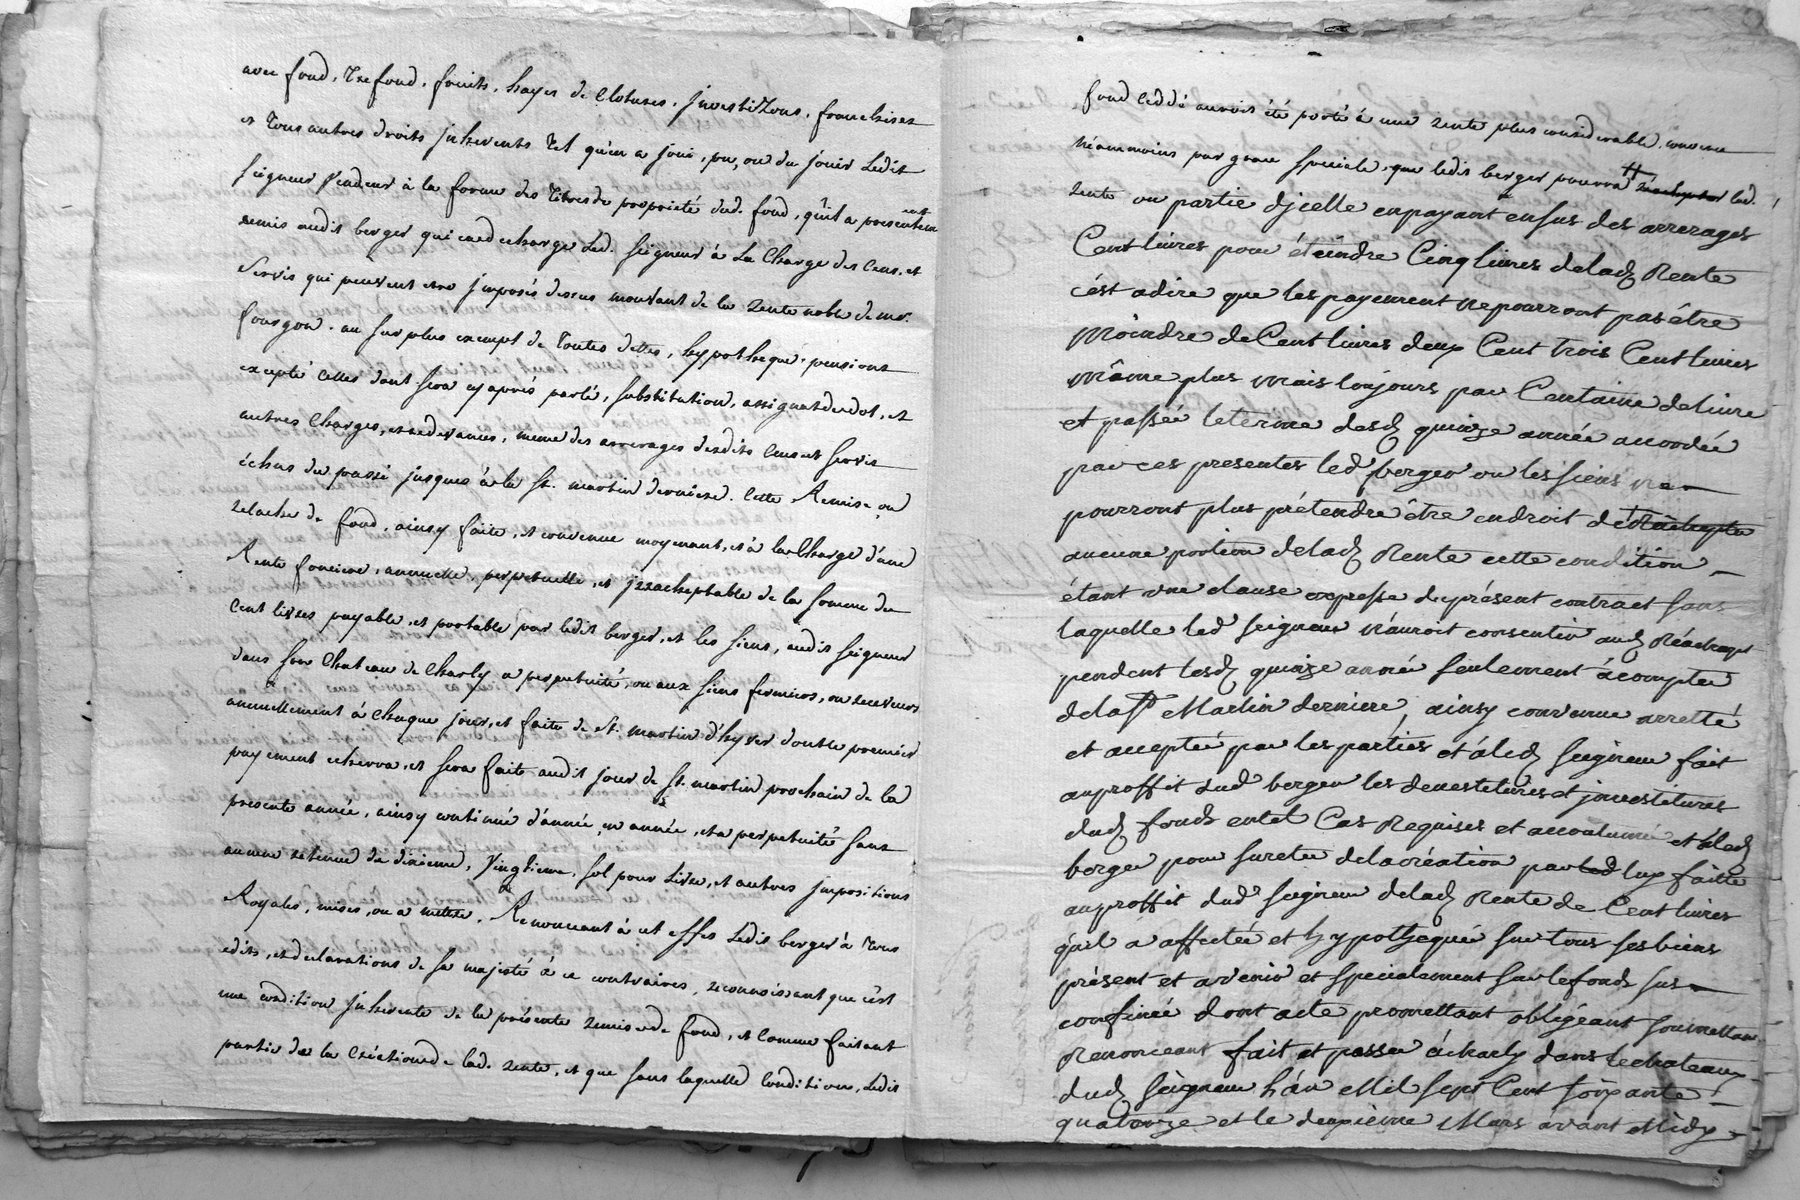 avec fond, trefond, fruits, hayes de Clotures, Investizons, franchises
et tous autres droits Inherents tel qu'en a joui, pu, ou du jouir Ledit
seigneur Vendeur à la forme des titres de proprieté dud. fond, qu'il a presentement
remis audit berger qui en decharge Led. seigneur à La Charge des Cens, et
servis qui peuvent etre Imposés dessus mouvant de la rente noble de mr.
fourgon. au surplus exempt de toutes dettes, hypotheque, pensions
excepté Celles dont sera cy aprés parlé, substitution, assignat de dot, et
autres Charges, et redevances, meme des arrerages desdits Cens et servis
échus du passé jusques à la St. martin derniere. Cette Remise, ou
relache de fond, ainsy faite, et convenue moyenant, et à la Charge d'une
Rente fonciere, annuelle, perpetuelle, et Irracheptable de la somme de
Cent livres payable, et portable par ledit berger, et les siens, audit seigneur
dans son Chateau de Charly a perpetuité, ou aux siens fermiers, ou receveurs
annuellement à Chaque jour, et faite de St. martin d'hyver dont le premier
payement echerra, et sera faite audit jour de St. martin prochain de la
presente année, ainsy continué d'année, en année, et a perpetuité sans
aucune retenue de dixieme, Vingtieme, sol pour Livre, et autres Impositions
Royales, mises, ou a mettre, Renoncant à cet effet Ledit berger à tous
edits, et declarations de sa majesté à ce contraires, reconnoissant que c'est
une condition Inherente de la présente remise de fond, et Comme faisant
partie de la Création de lad. rente, et que sans laquelle Condition, Ledit
fond cedé auroit été porté à une rente plus considerable, convenu
néammoins par grace speciale, que ledit berger pourra # lad.
rente ou partie d'jcelle en payant ensus des arrerages
Cent livres pour éteindre Cinq livres de lad Rente
c'est adire que les payement ne pourront pas être
moindre de Cent livres deux Cent trois Cent livres
même plus mais toujours par Centaine de livre
et passée le terme desd quinze année accordée
par ces presentes led berger ou les siens ne
pourront plus prétendre être endroit de
aucune portion de lad Rente cette condition
étant une clause expresse du présent contract sans
laquelle led seigneur n'auroit consentir aud Réachapt
pendent lesd quinze année seulement à compter
de la St Martin derniere, ainsy convenue arretté
et accepté par les parties et à led seigneur fait
au proffit dud berger les devestitures et jnvestitures
dud fond en tel Cas Requises et accoutumé et à led
berger pour surete de la création par luy faitte
au proffit dud seigneur de lad Rente de Cent livres
qu'il a affectée et hypothequé sur tous ses biens
présent et avenir et specialement sur le fond sus
confinée dont acte promettant obligéant soumettant
Renonceant fait et passer à charly dans le chateaux
dud seigneur l'an Mil sept Cent soixante
quatorze et le deuxième Mars avant Midy